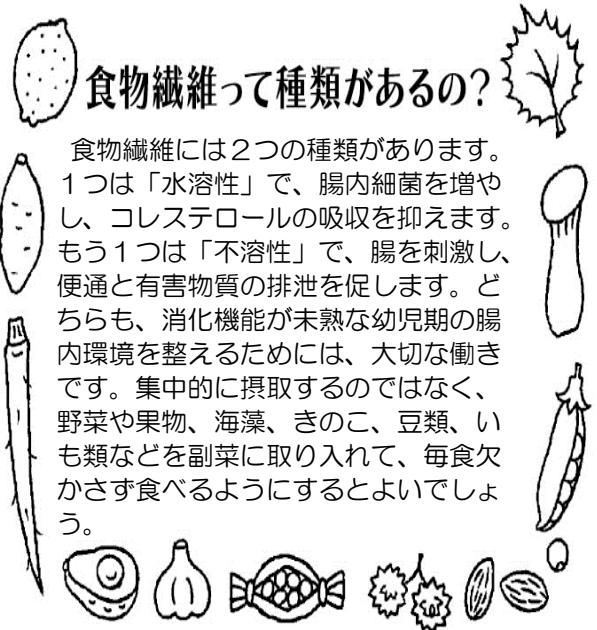 食物繊維って種類があるの?
食物繊維には２つの種類があります。
１つは「水溶性」で、腸内細菌を増や
し、コレステロールの吸収を抑えます。
もう１つは「不溶性」で、腸を刺激し、
便通と有害物質の排泄を促します。ど
ちらも、消化機能が未熟な幼児期の腸
内環境を整えるためには、大切な働き
です。集中的に摂取するのではなく、
野菜や果物、海藻、きのこ、豆類、い
も類などを副菜に取り入れて、毎食欠
かさず食べるようにするとよいでしょ
う。